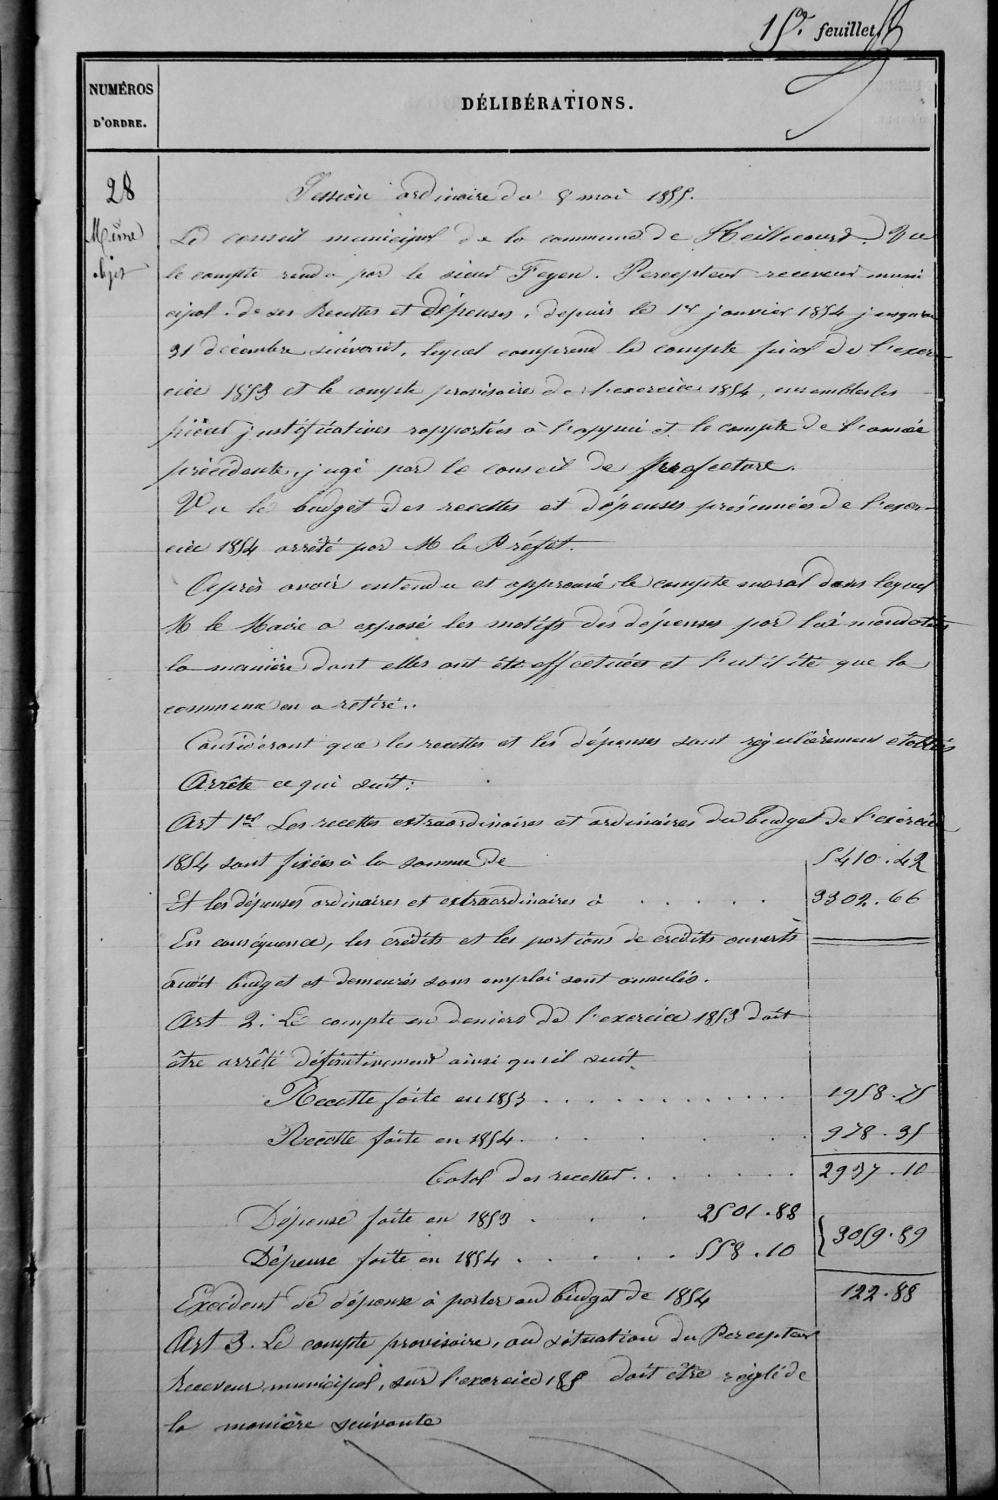 15e feuillet
NUMÉROS
D'ORDRE.
DÉLIBÉRATIONS.
28
Même
objet
Session ordinaire du 8 mai 1855.
Le conseil municipal de la commune de Heillecourt. Vu
le compte rendu par le sieur Feyen. Percepteur receveur muni
cipal. de ses Recettes et dépenses, depuis le 1er janvier 1854 jusqu'au
31 décembre suivant, lequel comprend le compte final de l'exer-
cice 1853 et le compte provisoire de l'exercice 1854, ensemble les
pièces justificatives rapportées à l'appui et le compte de l'année
précédente, jugé par le conseil de préfecture.
Vu le budget des recettes et dépenses présumées de l'exer-
cice 1854 arrêté par M le Préfet.
Après avoir entendu et approuvé le compte moral dans lequel
M le Maire a exposé les motifs des dépenses par lui mandatées
la manière dont elles ont été effectuées et l'utilité que la
commune en a retiré..
Considérant que les recettes et les dépenses sont régulièrement etablies
Arrête ce qui suit:
Art 1er Les recettes extraordinaires et ordinaires du budget de l'exercice
1854 sont fixées à la somme de 5410.42
Et les dépenses ordinaires et extraordinaires à . . . . . 3302.66
En conséquence, les crédits et les portions de crédits ouverts
audit budget et demeurés sans emploi sont annulés.
Art 2. Le compte en deniers de l'exercice 1853 doit
être arrêté définitivement ainsi qu'il suit
Recette faite en 1853 . . . . . . . . . . . . 1958.75
Recette faite en 1854. . . . . . 978.35
Total des recettes. . . . . . 2937.10
Dépense faite en 1853 . . . 2501.88
Dépense faite en 1854 . . . . . 558.10 } 3059.89
Excédent de dépense à porter au budget de 1854 122.88
Art 3. Le compte provisoire, ou situation du Percepteur
Receveur municipal, sur l'exercice 185 doit être réglé de
la manière suivante